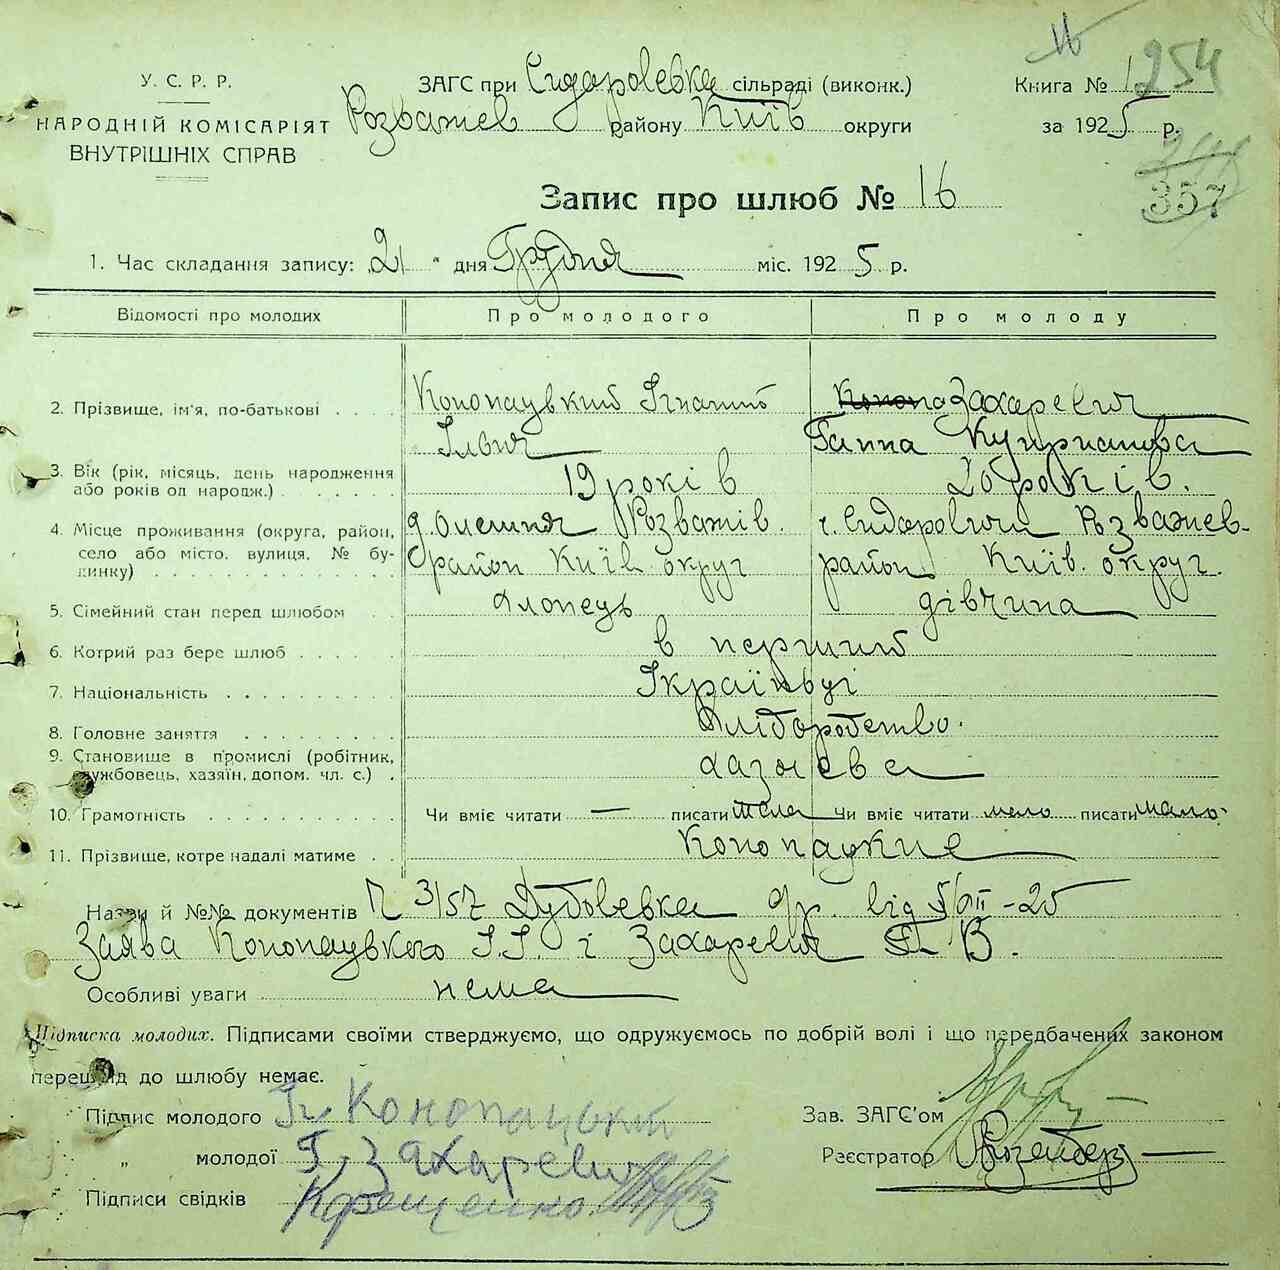 У. С. Р. Р.
НАРОДНІЙ КОМІСАРІЯТ
ВНУТРІШНІХ СПРАВ
ЗАГС при Сидаровевка сільраді (виконк.)
Розважев району Київ округи
Книга № 1 254
за 1925 р.
357
Запис про шлюб № 16
1. Час складання запису: 21 " дня Грудня міс. 1925 р.
Відомості про молодих Про молодого Про молоду
2. Прізвище, ім'я, по-батькові Конопацвкий Ігнатий Захаревич
Ілвич Ганна Куприанова
3. Вік (рік, місяць, день народження
або років од народж.) 19 років 20 років.
4. Місце проживання (округа, район,
село або місто, вулиця, № бу-
динку) Розважів. Розважев-
район Київ округ район Київ. округ.
5. Сімейний стан перед шлюбом хлопець дівчина
6. Котрий раз бере шлюб в перший
7. Національність
8. Головне заняття хліборобство.
9. Становище в промислі (робітник,
службовець, хазяїн, допом. чл. с.)
10. Грамотність Чи вміє читати — писати мала Чи вміє читати мало писати мало.
11. Прізвище, котре надалі матиме
Назви й №№ документів 3/57 Дубовевка від
Заява Конопацвкого І.І. і Захаревич В.
Особливі уваги нема
Підписка молодих. Підписами своїми стверджуємо, що одружуємось по добрій волі і що передбачених законом
перешкід до шлюбу немає.
Підпис молодого Іг Конопацький
" молодої Г. Захаревич
Підписи свідків
Зав. ЗАГС'ом
Реєстратор